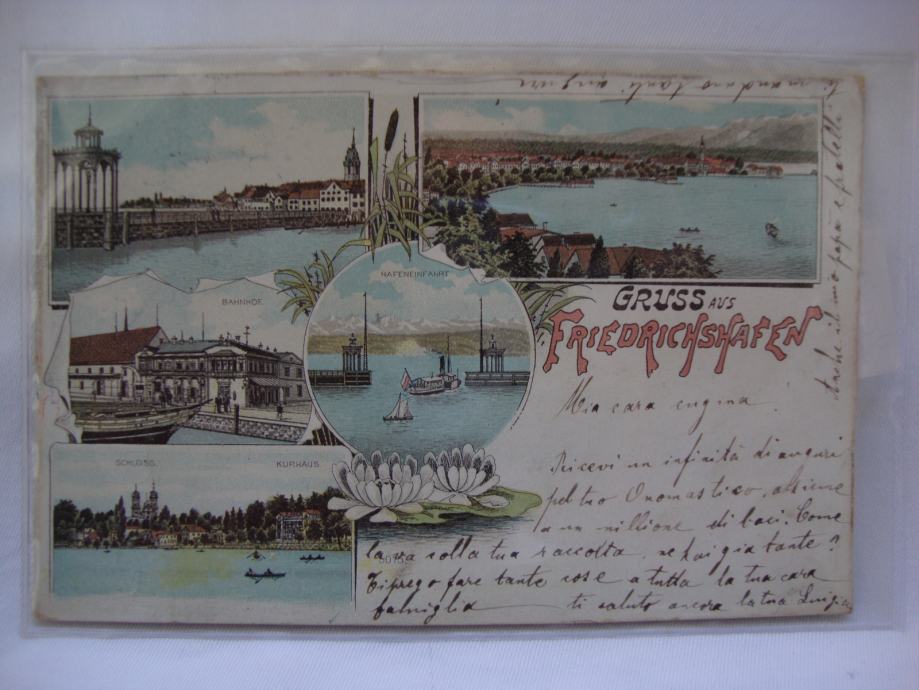 BAHNHOF.
HAFENEINFAHRT
SCHLOSS.
KURHAUS.
GRUSS AUS
FRIEDRICHSHAFEN
Mia cara cugina!
Ricevi un infinità di auguri
pel tuo Onomastico, assieme
a un millione di baci. Come
la va colla tua raccolta, ne hai gia tante?
Ti prego fare tante cose a tutta la tua cara
famiglia ti saluto ancora la tua Luigia
Anche il mio papà e fratelli
vi mandano tanti auguri